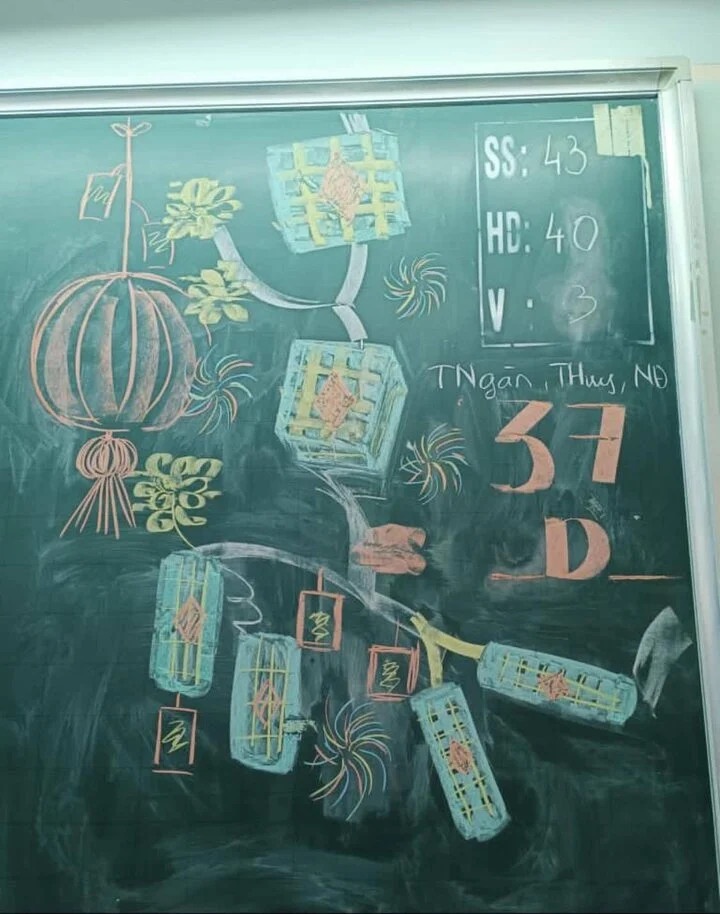 SS: 43
HD: 40
V : 3
TNgân, THuy, NĐ
37
D